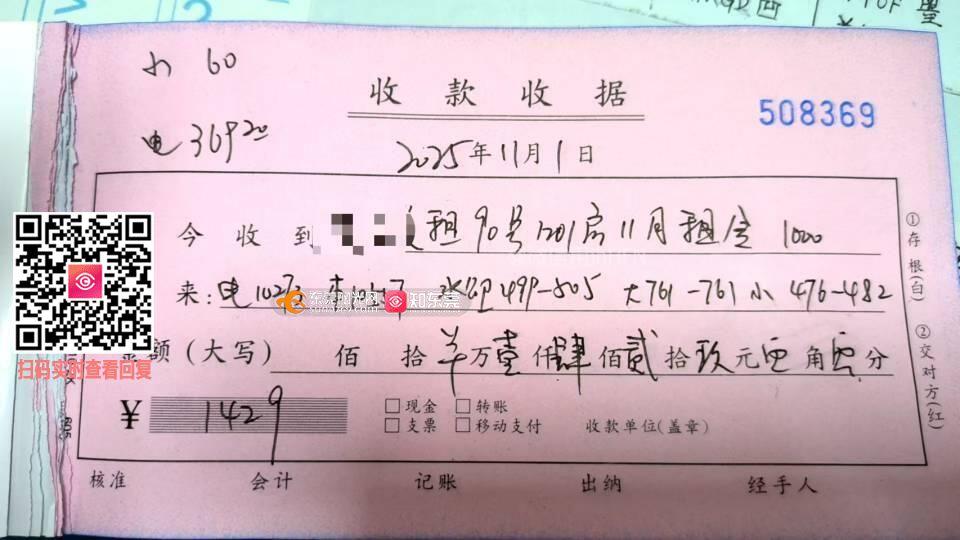 水 60
收款收据
508369
电 369.20
2025年11月1日
今收到 租90号1201房11月租金 1000
来:电 499-505 大761-761 小476-482
东莞阳光网
知东莞
金额(大写) 佰 拾 万壹仟肆佰贰拾玖元 角 分
¥ 1429
□现金 □转账
□支票 □移动支付 收款单位(盖章)
核准 会计 记账 出纳 经手人
①存根(白) ②交对方(红)
扫码实时查看回复